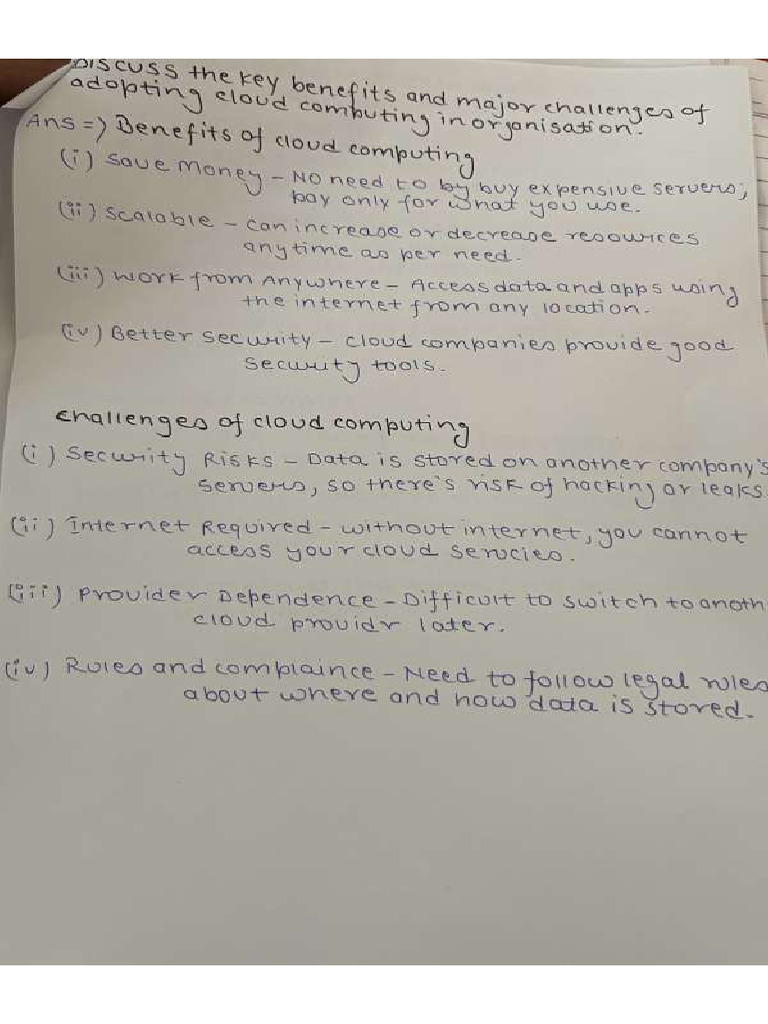 Discuss the key benefits and major challenges of
adopting cloud computing in organisation.
Ans => Benefits of cloud computing
(i) Save Money - No need to by buy expensive servers,
pay only for what you use.
(ii) Scalable - can increase or decrease resources
anytime as per need.
(iii) Work from Anywhere - Access data and apps using
the internet from any location.
(iv) Better Security - cloud companies provide good
security tools.
Challenges of cloud computing
(i) Security Risks - Data is stored on another company's
servers, so there's risk of hacking or leaks.
(ii) Internet Required - without internet, you cannot
access your cloud servcies.
(iii) Provider Dependence - Difficult to switch to anoth
cloud providr later.
(iv) Rules and complaince - Need to follow legal rules
about where and how data is stored.